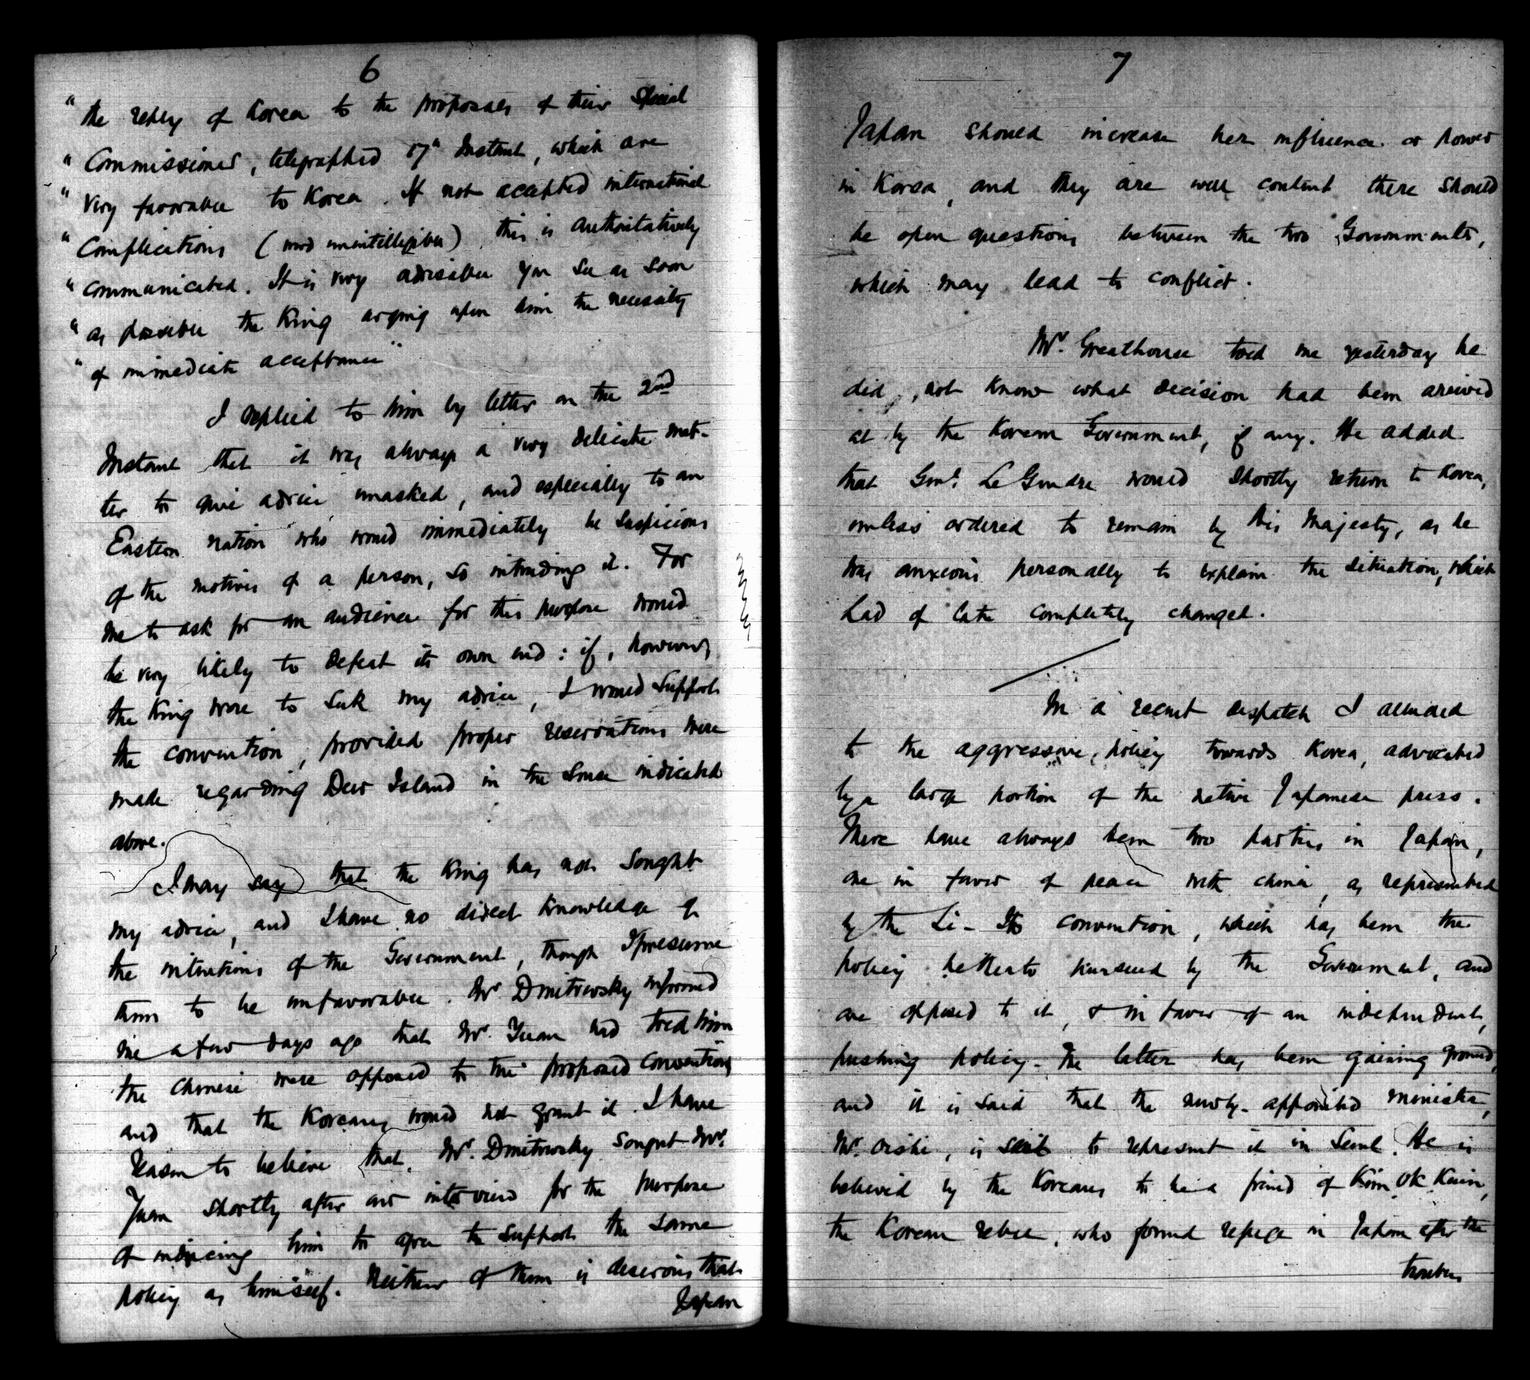 6
"the reply of Korea to the proposals of their Special
"Commissioner, telegraphed 17th Instant, which are
"very favorable to Korea. If not accepted international
"complications (word unintelligible) this is authoritatively
"communicated. It is very advisable you see as soon
"as possible the King urging upon him the necessity
"of immediate acceptance"
I replied to him by letter on the 2nd
Instant that it was always a very delicate mat-
ter to give advice unasked, and especially to an
Eastern nation who would immediately be suspicious
of the motives of a person, so intruding it. For
me to ask for an audience for this purpose would
be very likely to defeat its own end: if, however,
the King were to seek my advice, I would support
the convention, provided proper reservations were
made regarding Deer Island in the sense indicated
above.
I may say that the King has not sought
my advice, and I have no direct knowledge of
the intentions of the Government, though I presume
them to be unfavorable. Mr. Dmitrevsky informed
me a few days ago that Mr. Yuan had told him
the Chinese were opposed to the proposed convention
and that the Koreans would not grant it. I have
reason to believe that Mr. Dmitrevsky sought Mr.
Yuan shortly after our interview for the purpose
of inducing him to agree to support the same
policy as himself. Neither of them is desirous that
Japan
7
Japan should increase her influence or power
in Korea, and they are well content there should
be open questions between the two Governments,
which may lead to conflict.
Mr. Greathouse told me yesterday he
did not know what decision had been arrived
at by the Korean Government, if any. He added
that Genl. Le Gendre would shortly return to Korea,
unless ordered to remain by His Majesty, as he
was anxious personally to explain the situation, which
had of late completely changed.
In a recent despatch I alluded
to the aggressive policy towards Korea, advocated
by a large portion of the native Japanese press.
There have always been two parties in Japan,
one in favor of peace with China, as represented
by the Li-Ito convention, which has been the
policy hitherto pursued by the Government, and
one opposed to it, & in favor of an independent,
pushing policy. The latter has been gaining ground,
and it is said that the newly-appointed minister,
Mr. Oishi, is sent to represent it in Seoul. He is
believed by the Koreans to be a friend of Kim Ok Kuin,
the Korean rebel, who found refuge in Japan after the
troubles